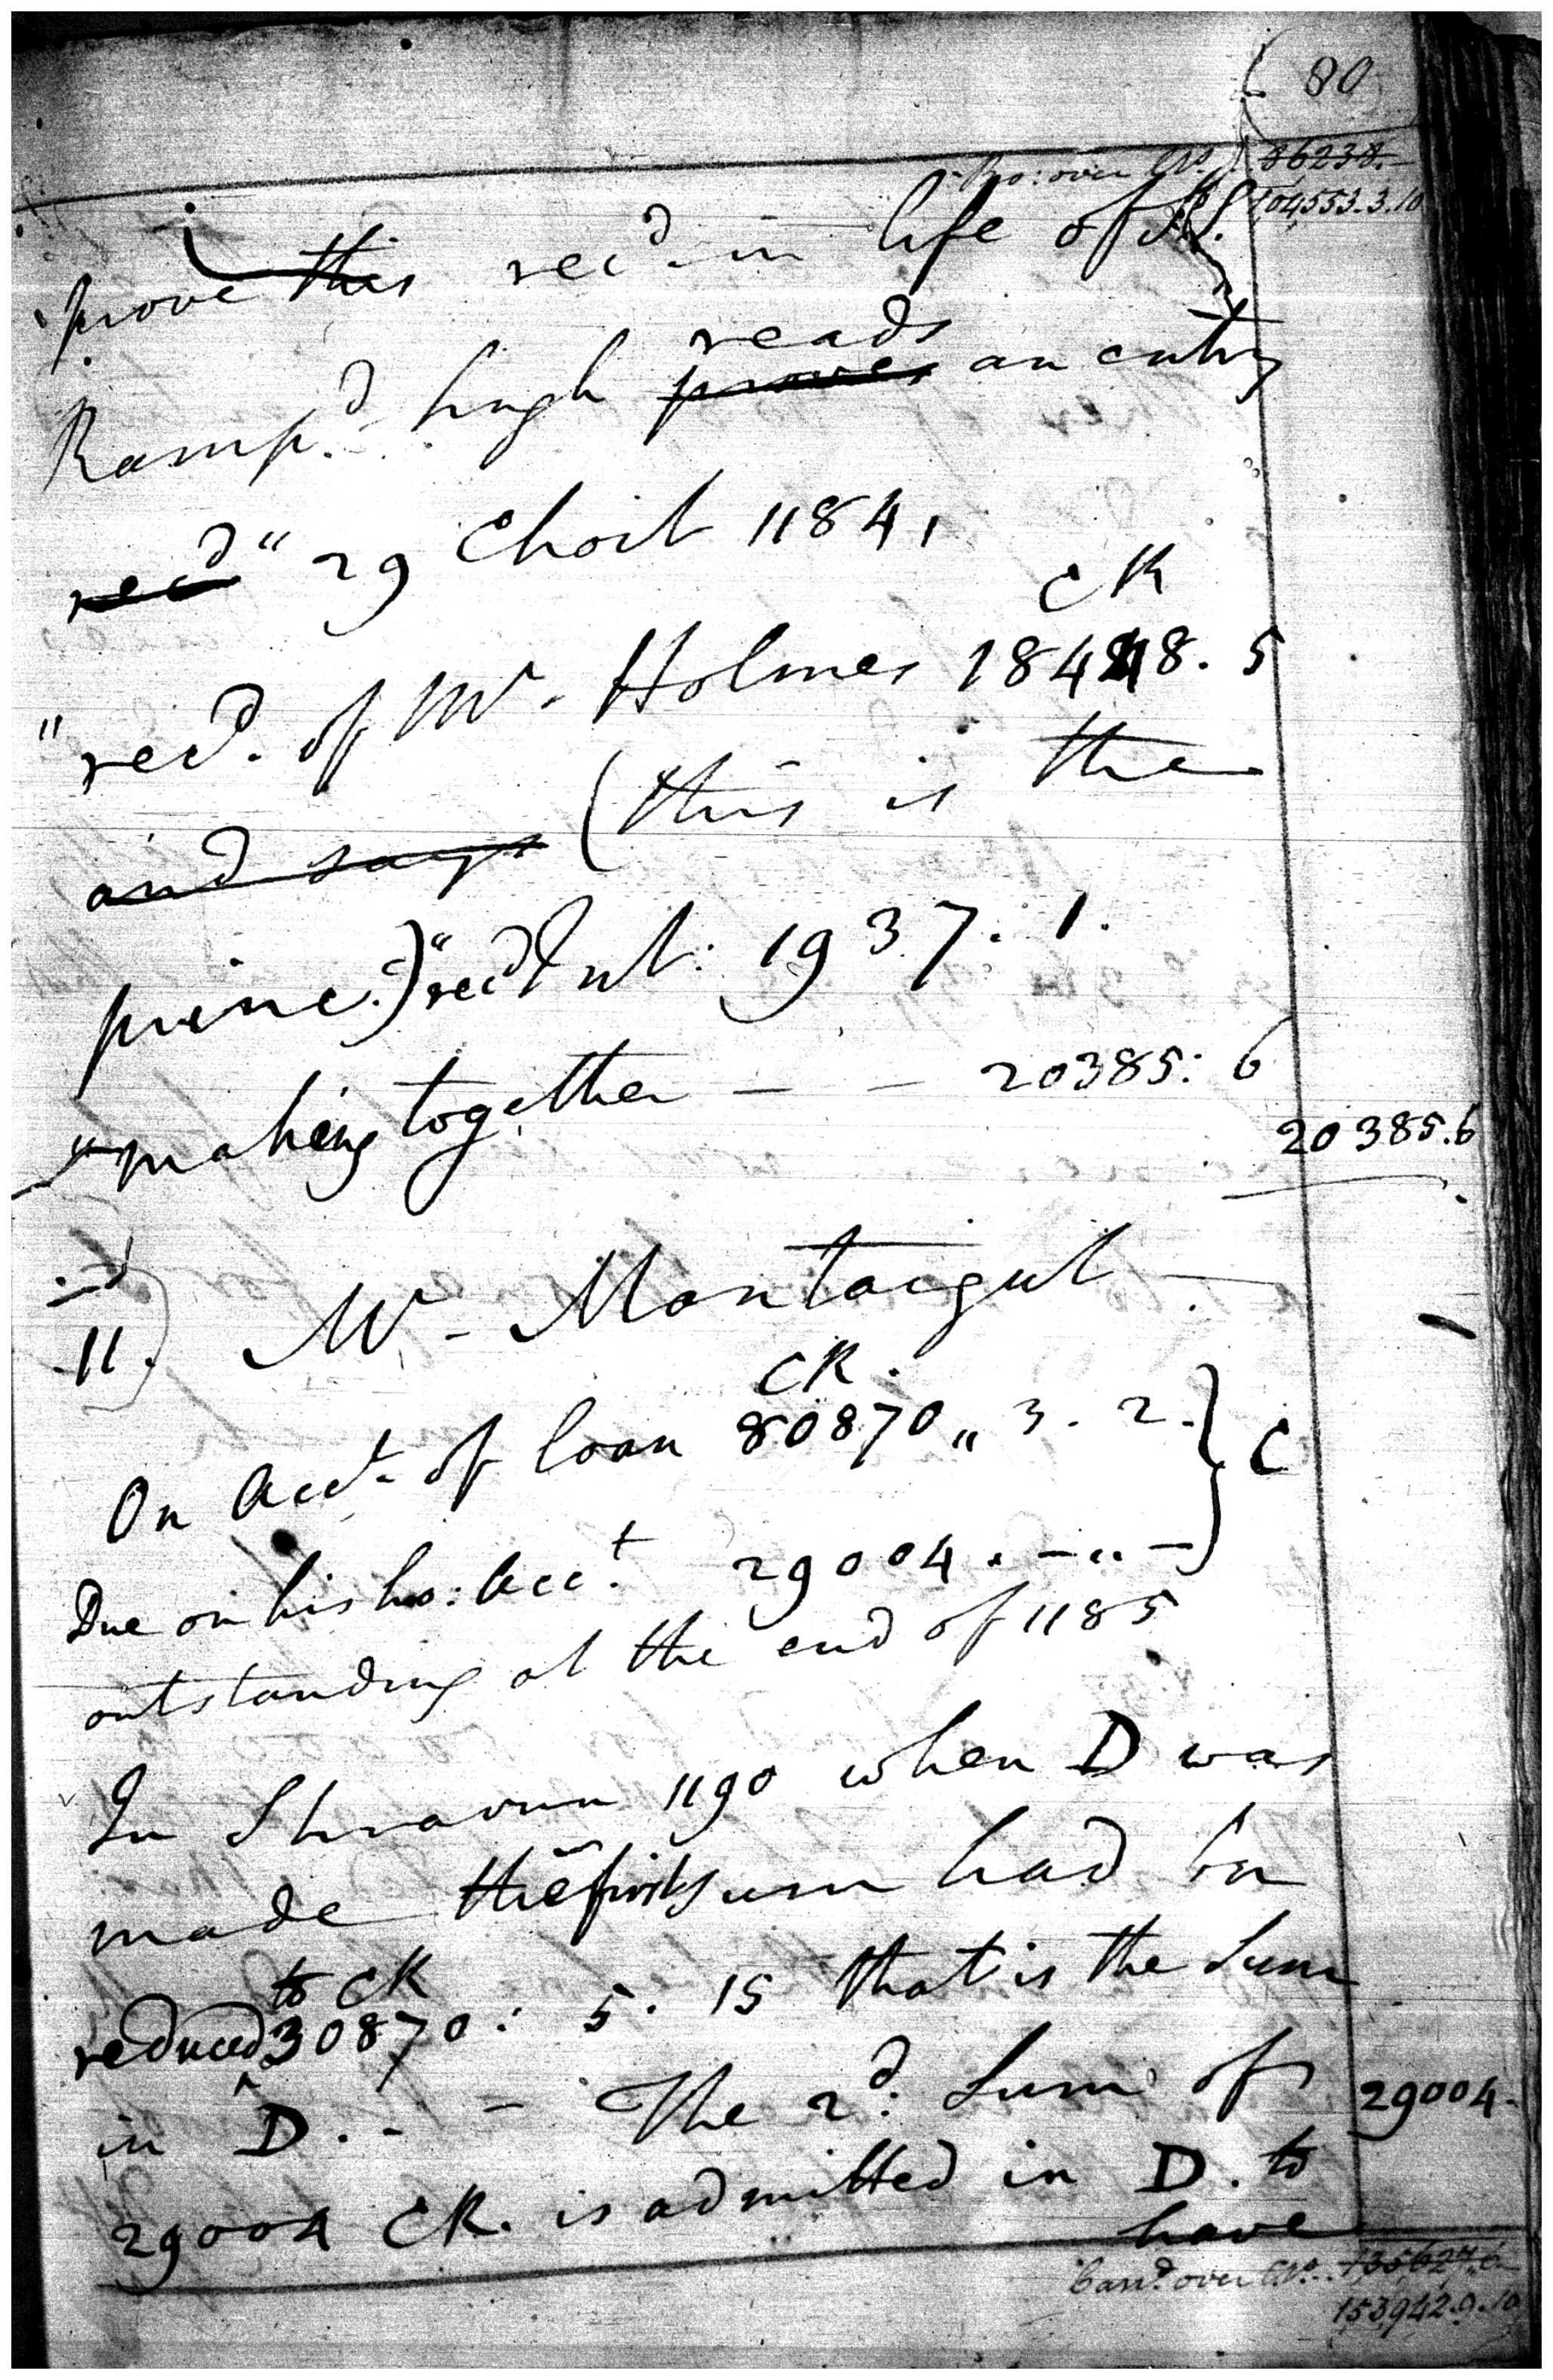 80
Bro: over CRs. 86238.-
104553.3.10
prove this recd in life of
Rampd. hugh reads
proves an entry
recd " 29 Choit 1184,
CR
"recd. of Mr. Holmes 18448. 5
and says (this is the
princ.) "recd Int: 1937. 1.
"making together - - 20385: 6
20385.6
11. Mr. Montaigut
CR.
On Acct. of loan 80870 " 3. 2. } C
Due on his ho: Acct. 29004. -..-
outstanding at the end of 1185
In Shravun 1190 when D was
made the first sum had bn
to CR
reduced 30870: 5. 15 that is the Sum
in D. - - The 2d. Sum of 29004-
29004 CR. is admitted in D. to
have
Card. over CRs. 135627.6
153942.9.10